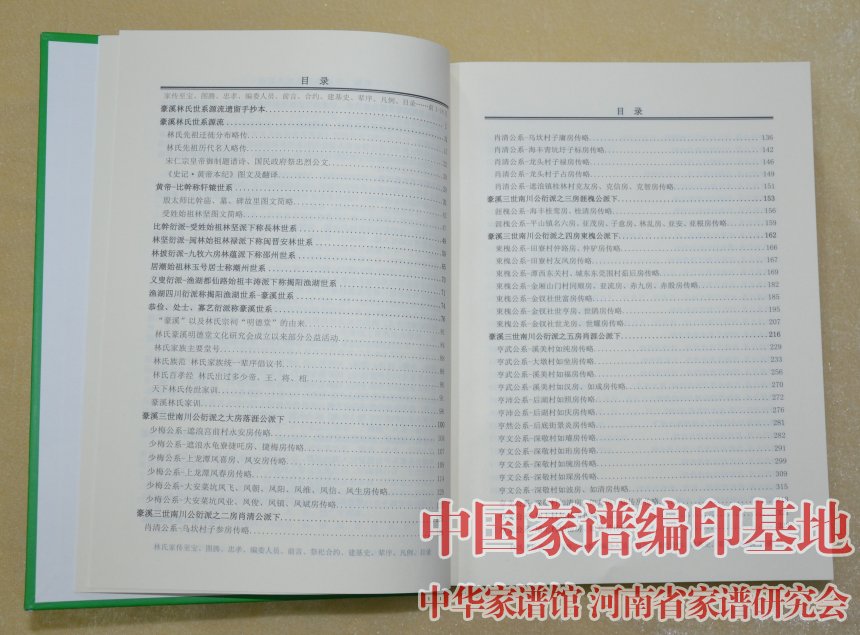 目 录
家传至宝、图腾、忠孝、编委人员、前言、合约、建基史、辈序、凡例、目录
豪溪林氏世系源流遗留手抄本
豪溪林氏世系源流
林氏先祖迁徙分布略传
林氏先祖历代名人略传
宋仁宗皇帝御制题谱诗、国民政府祭忠烈公文
《史记·黄帝本纪》图文及翻译
黄帝-比幹称轩辕世系
殷太师比幹庙、墓、碑故里图文简略
受姓始祖林坚图文简略
比幹衍派-受姓始祖林坚派下称長林世系
林坚衍派-闽林始祖林禄派下称闽晋安林世系
林披衍派-九牧六房林蕴派下称邵州世系
居潮始祖林玉号居士称潮州世系
义叟衍派-渔湖都仙路始祖丰涛派下称揭阳渔湖世系
渔湖四川衍派称揭阳渔湖世系-豪溪世系
恭俭、处士、嘉艺衍派称豪溪世系
“豪溪”以及林氏宗祠“明德堂”的由来
林氏豪溪明德堂文化研究会成立以来部分公益活动
林氏家族主要堂号
林氏族范 林氏家族统一辈序倡议书
林氏百孝经 林氏出过多少帝、王、将、相
天下林氏传世家训
豪溪林氏家训
豪溪三世南川公衍派之大房落涯公派下 100
少梅公系-遮浪宫前村永安房传略
少梅公系-遮浪水龟寮捷吒房、捷梅房传略
少梅公系-上龙潭凤喜房、凤安房传略
少梅公系-上龙潭凤春房传略
少梅公系-大安菜坑凤飞、凤朝、凤阳、凤维、凤信、凤生房传略
少梅公系-大安菜坑凤业、凤俊、凤镇、凤斌房传略
豪溪三世南川公衍派之二房肖清公派下
肖清公系-乌坎村子参房传略
林氏家传至宝、图腾、忠孝、编委人员、前言、祭祀合约、建基史、辈序、凡例、目录
目 录
肖清公系-乌坎村子庸房传略 136
肖清公系-海丰青坑圩子标房传略 142
肖清公系-龙头村子禄房传略 146
肖清公系-龙头村子占房传略 149
肖清公系-遮浪镇桂林村克友房、克信房、克智房传略 151
豪溪三世南川公衍派之三房翘槐公派下 153
翘槐公系-海丰桂莺房、桂清房传略 155
豪溪三世南川公衍派之四房東槐公派下 162
東槐公系-田寮村仲路房、仲驴房传略 166
東槐公系-田寮村友凤房传略 167
東槐公系-潭西东关村、城东东莞围村茹后房传略 169
東槐公系-金厢山门村同顺房、亚流房、赤九房、赤股房传略 182
東槐公系-金钗社世富房传略 185
東槐公系-金钗社世亨房、世猎房传略 195
東槐公系-金钗社世龙房、世耀房传略 207
豪溪三世南川公衍派之五房肖涯公派下 216
亨武公系-溪美村如纯房传略
亨武公系-大墩村如奂房传略 233
亨武公系-溪美村如福房传略 256
亨武公系-溪美村如汉房、如成房传略 270
亨沛公系-后湖村如照房传略 272
亨沛公系-后湖村如庆房传略 276
亨然公系-后底街景炎房传略 281
亨文公系-深敬村如墙房传略 282
亨文公系-深敬村如珩房传略 291
亨文公系-深敬村如琬房传略 299
亨文公系-深敬村如琛房传略 309
亨文公系-深敬村如波房、如清房传略 315
中国家谱编印基地
中华家谱馆 河南省家谱研究会